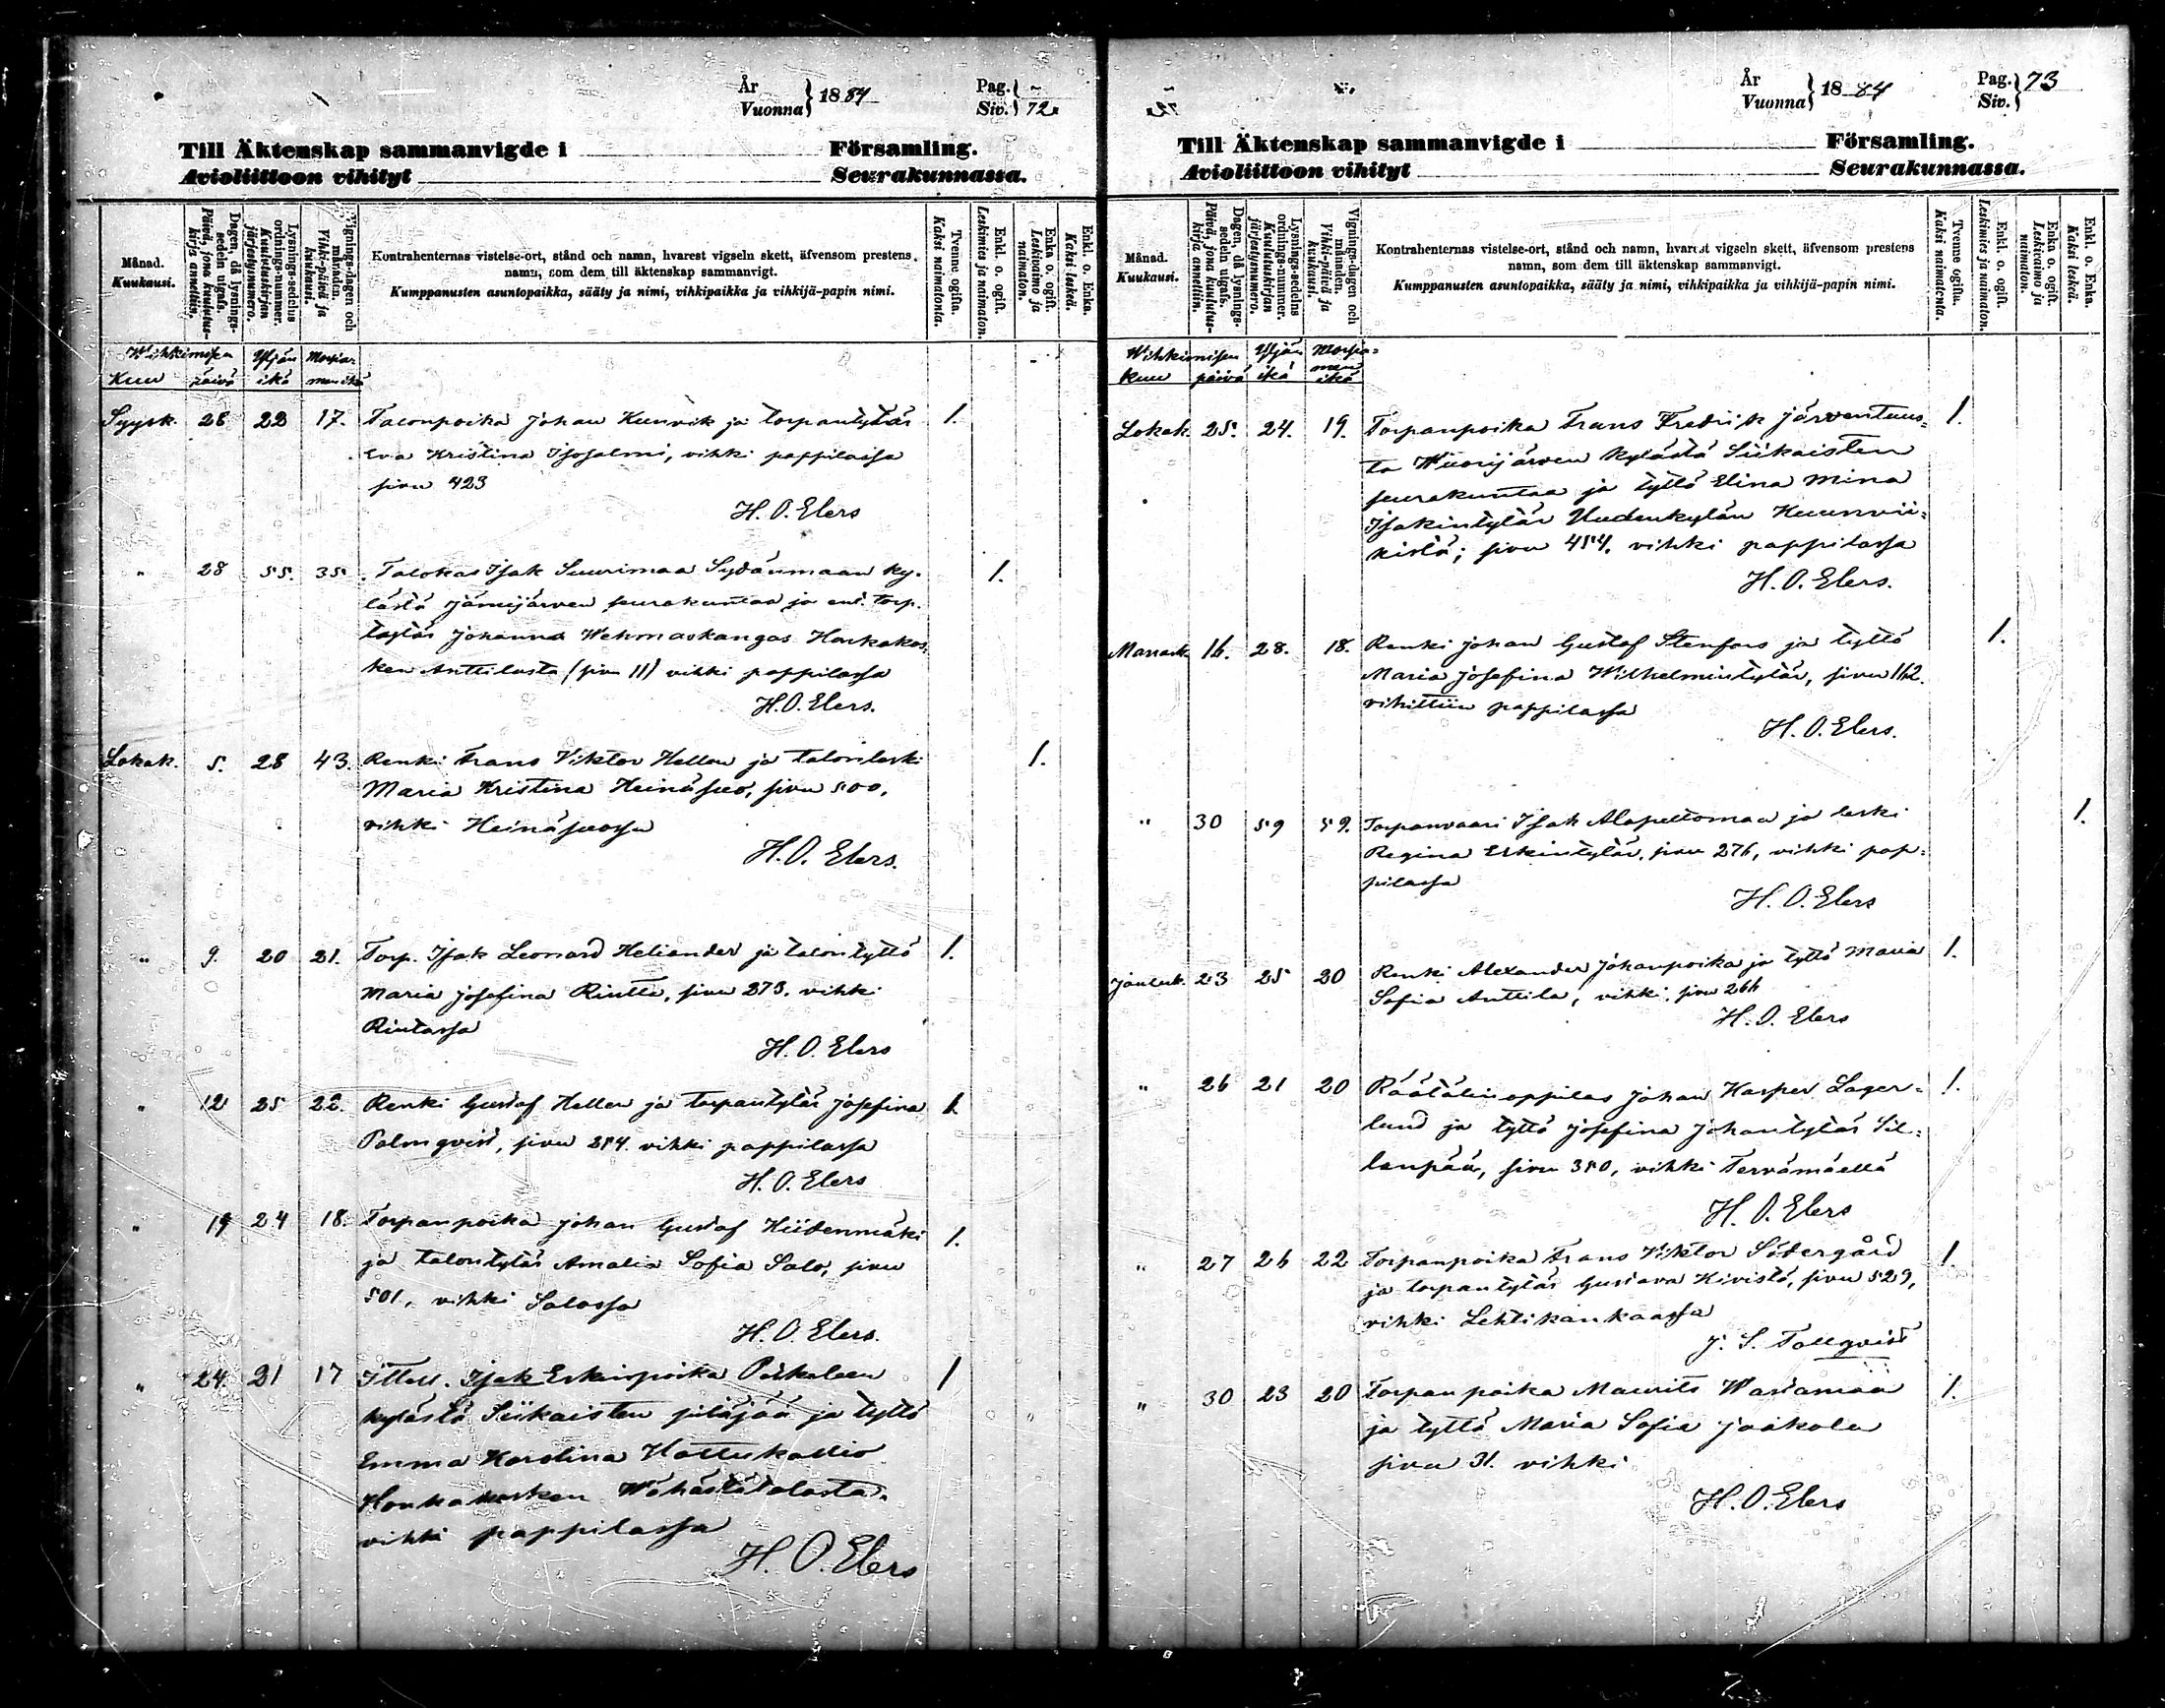 År
Vuonna } 1884
Pag. Siv. } 72
Till Äktenskap sammanvigde i Församling.
Avioliittoon vihityt Seurakunnassa.
Månad.
Kuukausi.
Dagen, då lysnings-sedeln utgafs.
Päivä, jona kuulutus-kirja annettiin.
Lysnings-sedelns ordnings-nummer.
Kuulutuskirjan järjestysnumero.
Vignings-dagen och månaden.
Vihki-päivä ja kuukausi.
Kontrahenternas vistelse-ort, stånd och namn, hvarest vigseln skett, äfvensom prestens
namn, som dem till äktenskap sammanvigt.
Kumppanusten asuntopaikka, sääty ja nimi, vihkipaikka ja vihkijä-papin nimi.
Tvenne ogifta.
Kaksi naimatonta.
Enkl. o. ogift.
Leskimies ja naimaton.
Enka o. ogift.
Leskivaimo ja naimaton.
Enkl. o. Enka.
Kaksi leskeä.
Wihkimisen Yljän Morsia-
Kuu päivä ikä men ikä
Syysk. 28 22 17. Talonpoika Johan Kunvik ja torpantytär 1.
Eva Kristina Isosalmi, vihki pappilassa
sivu 423
H. O. Elers
" 28 55. 35 Talokas Isak Suurimaa Sydänmaan ky- 1.
lästä Jämijärven seurakuntaa ja ent. torp.
tytär Johanna Wehmaskangas Honkakos-
ken Anttilasta (sivu 11) vihki pappilassa
H. O. Elers.
Lokak. 5. 28 43. Renki Frans Viktor Hellen ja talonleski 1.
Maria Kristina Heinäsuo, sivu 500,
vihki Heinäsuossa
H. O. Elers.
" 9. 20 21. Torp. Isak Leonard Heliander ja talontyttö 1.
Maria Josefina Rintta, sivu 273. vihki
Rintassa
H. O. Elers
" 12 25 22. Renki Gustaf Hellen ja torpantytär Josefina 1.
Palmqvist, sivu 284. vihki pappilassa
H. O. Elers
" 19 24 18. Torpanpoika Johan Gustaf Hiidenmäki 1.
ja talontytär Amalia Sofia Salo, sivu
501, vihki Salossa
H. O. Elers.
" 24 21 17 Ittell. Isak Erkinpoika 1
kylästä Siikaisten pitäjää ja tyttö
Emma Karolina Hattukallio
Honkakosken Wähästätalosta.
vihki pappilassa
H. O. Elers
År
Vuonna } 1884
Pag. Siv. } 73
Till Äktenskap sammanvigde i Församling.
Avioliittoon vihityt Seurakunnassa.
Månad.
Kuukausi.
Dagen, då lysnings-sedeln utgafs.
Päivä, jona kuulutus-kirja annettiin.
Lysnings-sedelns ordnings-nummer.
Kuulutuskirjan järjestysnumero.
Vignings-dagen och månaden.
Vihki-päivä ja kuukausi.
Kontrahenternas vistelse-ort, stånd och namn, hvarest vigseln skett, äfvensom prestens
namn, som dem till äktenskap sammanvigt.
Kumppanusten asuntopaikka, sääty ja nimi, vihkipaikka ja vihkijä-papin nimi.
Tvenne ogifta.
Kaksi naimatonta.
Enkl. o. ogift.
Leskimies ja naimaton.
Enka o. ogift.
Leskivaimo ja naimaton.
Enkl. o. Enka.
Kaksi leskeä.
Wihkimisen Yljän Morsia-
Kuu päivä ikä men ikä
Lokak. 25. 24. 19. Torpanpoika Frans Fredrik Järventaus- 1.
ta Wuorijärven kylästä Siikaisten
seurakuntaa ja tyttö Elina Mina
Isakintytär Uudenkylän Kuunvii-
kistä; sivu 454. vihki pappilassa
H. O. Elers.
Marrask. 16. 28. 18. Renki Johan Gustaf Stenfors ja tyttö 1.
Maria Josefina Wilhelmintytär, sivu 162.
vihittiin pappilassa
H. O. Elers.
" 30 59 59. Torpanvaari Isak Alapeltomaa ja leski 1.
Regina Erkintytär, sivu 276, vihki pap-
pilassa
H. O. Elers
Jouluk. 23 25 20 Renki Alexander Johanpoika ja tyttö Maria 1.
Sofia Anttila, vihki, sivu 266
H. O. Elers
" 26 21 20 Räätälinoppilas Johan Kasper Lager- 1.
lund ja tyttö Josefina Johantytär Sil-
lanpää, sivu 350, vihki Tervämäellä
H. O. Elers
" 27 26 22 Torpanpoika Frans Viktor Södergård 1.
ja torpantytär Gustava Kivistö, sivu 529,
vihki Lehtikankaassa
J. S. Tallqvist
" 30 23 20 Torpanpoika Maurits Wastamaa 1.
ja tyttö Maria Sofia Jaakola
sivu 31. vihki
H. O. Elers